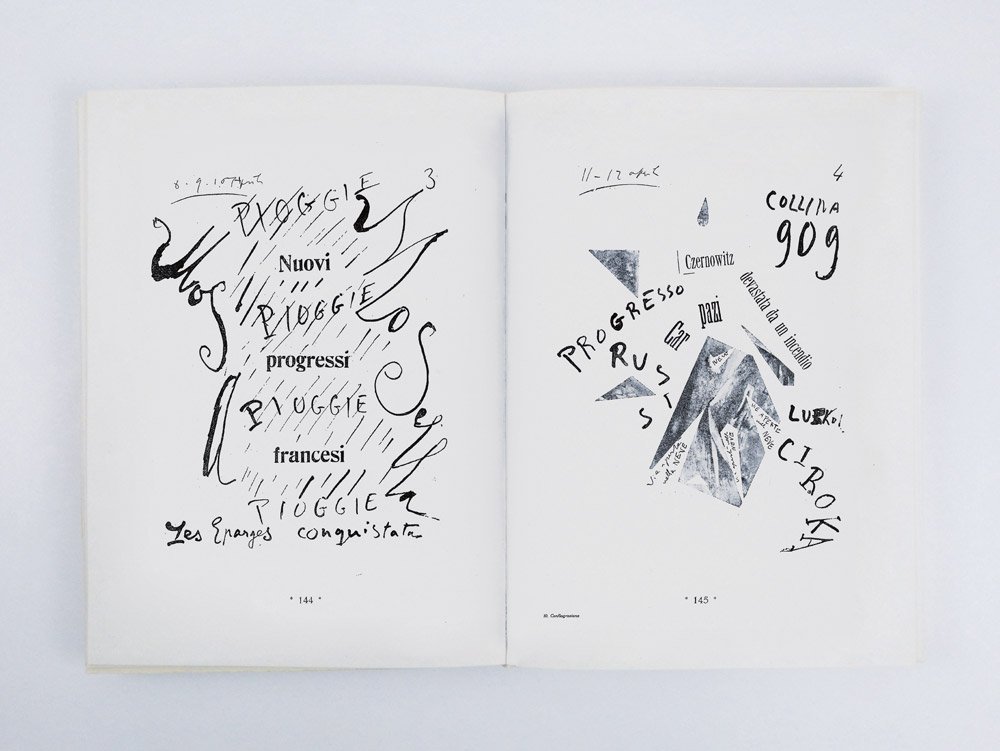 8. 9. 10 April
3
PIOGGIE
Nuovi
PIOGGIE
progressi
PIOGGIE
francesi
PIOGGIE
Mosa
Mosella
Les Eparges conquistata
* 144 *
11 - 12 april
4
COLLINA
909
Czernowitz
devastata da un incendio
PROGRESSO
RUSSI
Car pazi
NEVE
NEVE
nella NEVE
LUBKOV.
CIROKA
* 145 *
10. Conflagrazione